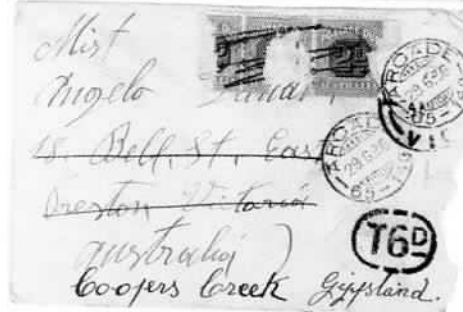 Mist
Angelo
18. Bell. St. East
Preston Victoria
Australia)
Coopers Creek Gippsland.
T6D
PARCADE
VIC
PARCADE